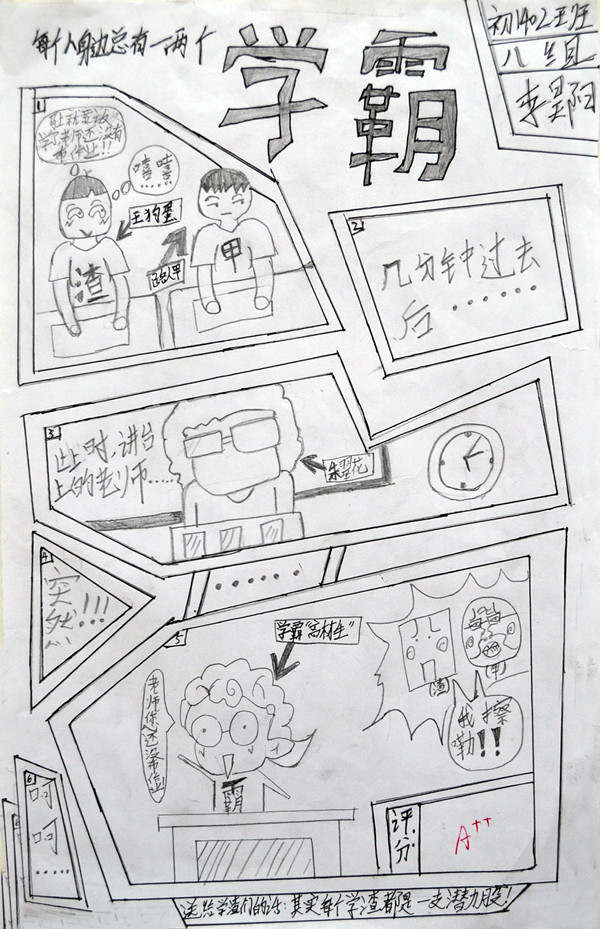 每个人身边总有一两个
学霸
初1402班
八组
李昊阳
1
马上就要放
学了老师还没有
布作业!!
嘻嘻
……
王狗蛋
路人甲
渣
甲
2
几分钟过去
后……
3
这时,讲台
上的老师……
朱翠花
4
突然!!!
……
5
学霸"高材生"
老师您还没布作业
霸
(渣)
(甲)
我擦
嘞!!
评分
A++
6
呵呵……
送给学渣们的话:其实每个学渣都是一支潜力股!